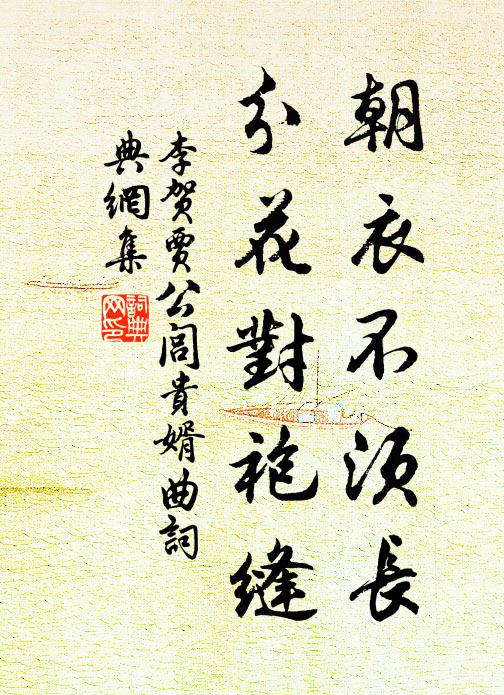 朝衣不須長
分花對袍縫
李賀賈公閭貴婿曲詞
典網集
詞典
网印